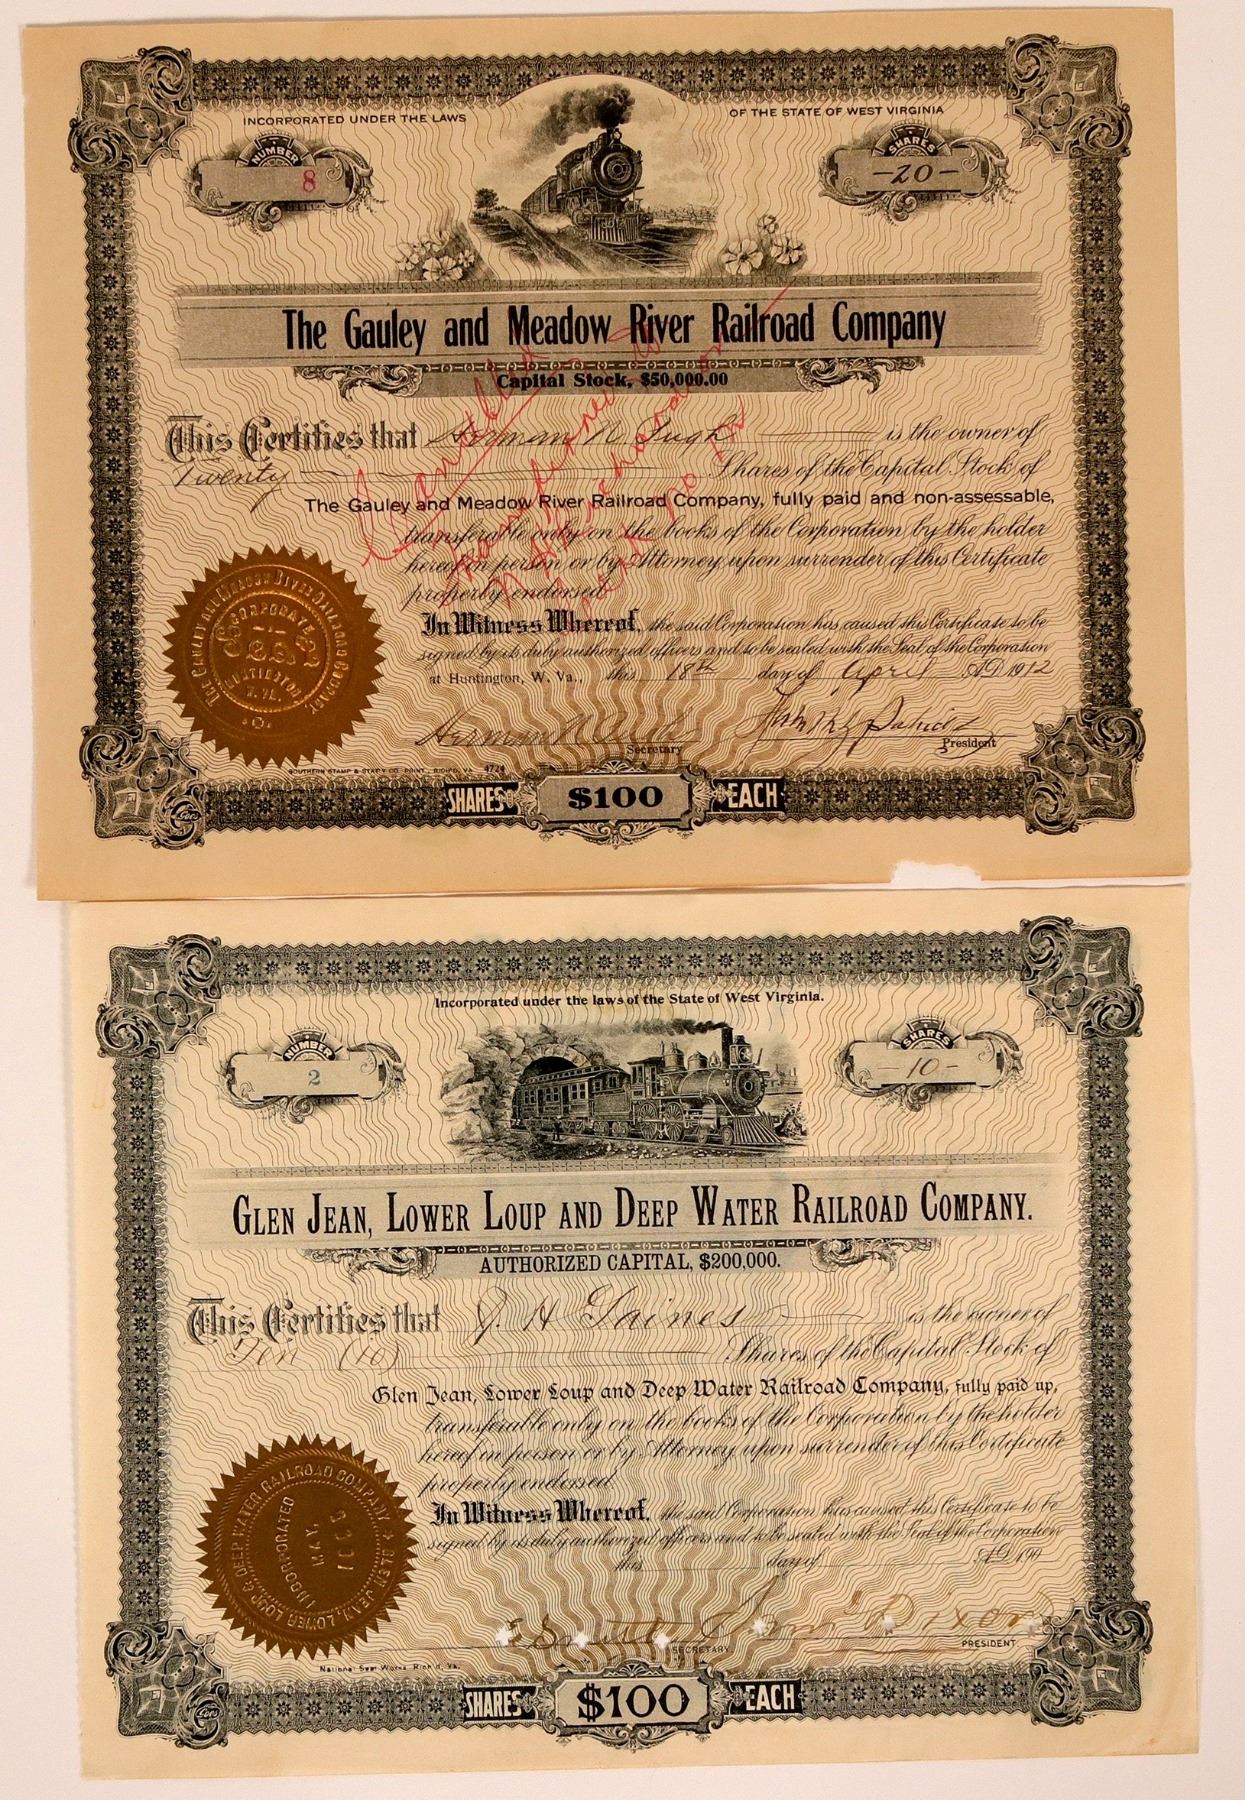 INCORPORATED UNDER THE LAWS OF THE STATE OF WEST VIRGINIA
NUMBER
8
SHARES
-20-
The Gauley and Meadow River Railroad Company
Capital Stock, $50,000.00
This Certifies that Herman N is the owner of
Twenty Shares of the Capital Stock of
The Gauley and Meadow River Railroad Company, fully paid and non-assessable,
transferable only on the books of the Corporation by the holder
hereof in person or by Attorney upon surrender of this Certificate
properly endorsed.
In Witness Whereof, the said Corporation has caused this Certificate to be
signed by its duly authorized officers and to be sealed with the Seal of the Corporation
at Huntington, W. Va., this 18th day of April A.D. 1912
Herman N
Secretary
President
Cancelled
THE GAULEY AND MEADOW RIVER RAILROAD COMPANY
CORPORATE
SEAL
HUNTINGTON
W. VA.
SOUTHERN STAMP & STAT'Y CO. PRINT., RICH'D, VA. 4724
SHARES $100 EACH
Incorporated under the laws of the State of West Virginia.
NUMBER
2
SHARES
-10-
GLEN JEAN, LOWER LOUP AND DEEP WATER RAILROAD COMPANY.
AUTHORIZED CAPITAL, $200,000.
This Certifies that J. H. Gaines is the owner of
Ten (10) Shares of the Capital Stock of
Glen Jean, Lower Loup and Deep Water Railroad Company, fully paid up,
transferable only on the books of the Corporation by the holder
hereof in person or by Attorney upon surrender of this Certificate
properly endorsed.
In Witness Whereof, the said Corporation has caused this Certificate to be
signed by its duly authorized officers and to be sealed with the Seal of the Corporation
this day of A.D. 190
SECRETARY.
Dixon
PRESIDENT
GLEN JEAN, LOWER LOUP & DEEP WATER RAILROAD COMPANY
INCORPORATED
MAY.
National Seal Works, Rich'd, Va.
SHARES $100 EACH